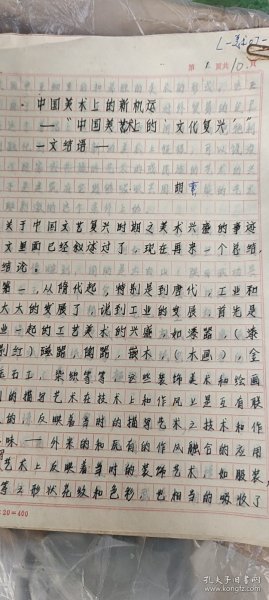 第 1 页共10页
中国美术上的新机运
——"中国美艺上的'文化复兴'"
一文结语——
胡蛮
关于中国文艺复兴时期之美术兴盛的事迹
文里面已经叙述过了，现在再来一个总结
结论。
第一，从隋代起，特别是到唐代，工业和
大大的发展了，说到工业的发展，首先是
业一起的工艺美术的兴盛，如漆器，（漆
剔红）磁器，陶器，嵌木，（木画），金
玉石工，染织等等，这些装饰美术和绘画
的描写艺术在技术上和作风上是互有联
的，反映着当时的描写艺术之技术和作
味——外来的和既有的作风融合的应用
艺术上反映着当时的装饰艺术，如服装，
等之形状花纹和色彩，艺相当的吸收了
20=400
孔夫子旧书网